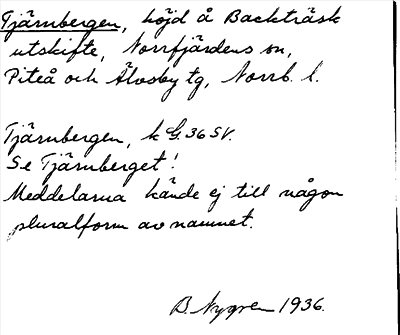 Tjärnbergen, höjd å Backträsk
utskifte, Norrfjärdens sn,
Piteå och Älvsby tg, Norrb. l.
Tjärnbergen, k G. 36 SV.
Se Tjärnberget!
Meddelarna kände ej till någon
pluralform av namnet.
B. Nygren 1936.